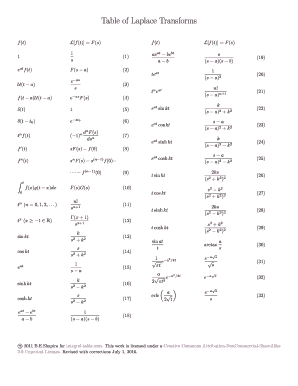 Table of Laplace Transforms
f(t) L[f(t)] = F(s)
1 1/s (1)
e^{at} f(t) F(s − a) (2)
U(t − a) e^{−as}/s (3)
f(t − a)U(t − a) e^{−as}F(s) (4)
δ(t) 1 (5)
δ(t − t₀) e^{−st₀} (6)
tⁿ f(t) (−1)ⁿ dⁿF(s)/dsⁿ (7)
f′(t) sF(s) − f(0) (8)
fⁿ(t) sⁿF(s) − s^{(n−1)}f(0) −
··· − f^{(n−1)}(0) (9)
∫₀ᵗ f(x)g(t − x)dx F(s)G(s) (10)
tⁿ (n = 0, 1, 2, ...) n!/s^{n+1} (11)
tˣ (x ≥ −1 ∈ ℝ) Γ(x + 1)/s^{x+1} (12)
sin kt k/(s² + k²) (13)
cos kt s/(s² + k²) (14)
e^{at} 1/(s − a) (15)
sinh kt k/(s² − k²) (16)
cosh kt s/(s² − k²) (17)
(e^{at} − e^{bt})/(a − b) 1/((s − a)(s − b)) (18)
f(t) L[f(t)] = F(s)
(ae^{at} − be^{bt})/(a − b) s/((s − a)(s − b)) (19)
te^{at} 1/(s − a)² (20)
tⁿe^{at} n!/(s − a)^{n+1} (21)
e^{at} sin kt k/((s − a)² + k²) (22)
e^{at} cos kt (s − a)/((s − a)² + k²) (23)
e^{at} sinh kt k/((s − a)² − k²) (24)
e^{at} cosh kt (s − a)/((s − a)² − k²) (25)
t sin kt 2ks/(s² + k²)² (26)
t cos kt (s² − k²)/(s² + k²)² (27)
t sinh kt 2ks/(s² − k²)² (28)
t cosh kt (s² + k²)/(s² − k²)² (29)
sin at/t arctan a/s (30)
1/√(πt) e^{−a²/4t} e^{−a√s}/√s (31)
a/(2√(πt³)) e^{−a²/4t} e^{−a√s} (32)
erfc(a/(2√t)) e^{−a√s}/s (33)
© 2011 B.E.Shapiro for integral-table.com. This work is licensed under a Creative Commons Attribution-NonCommercial-ShareAlike
3.0 Unported License. Revised with corrections July 1, 2016.